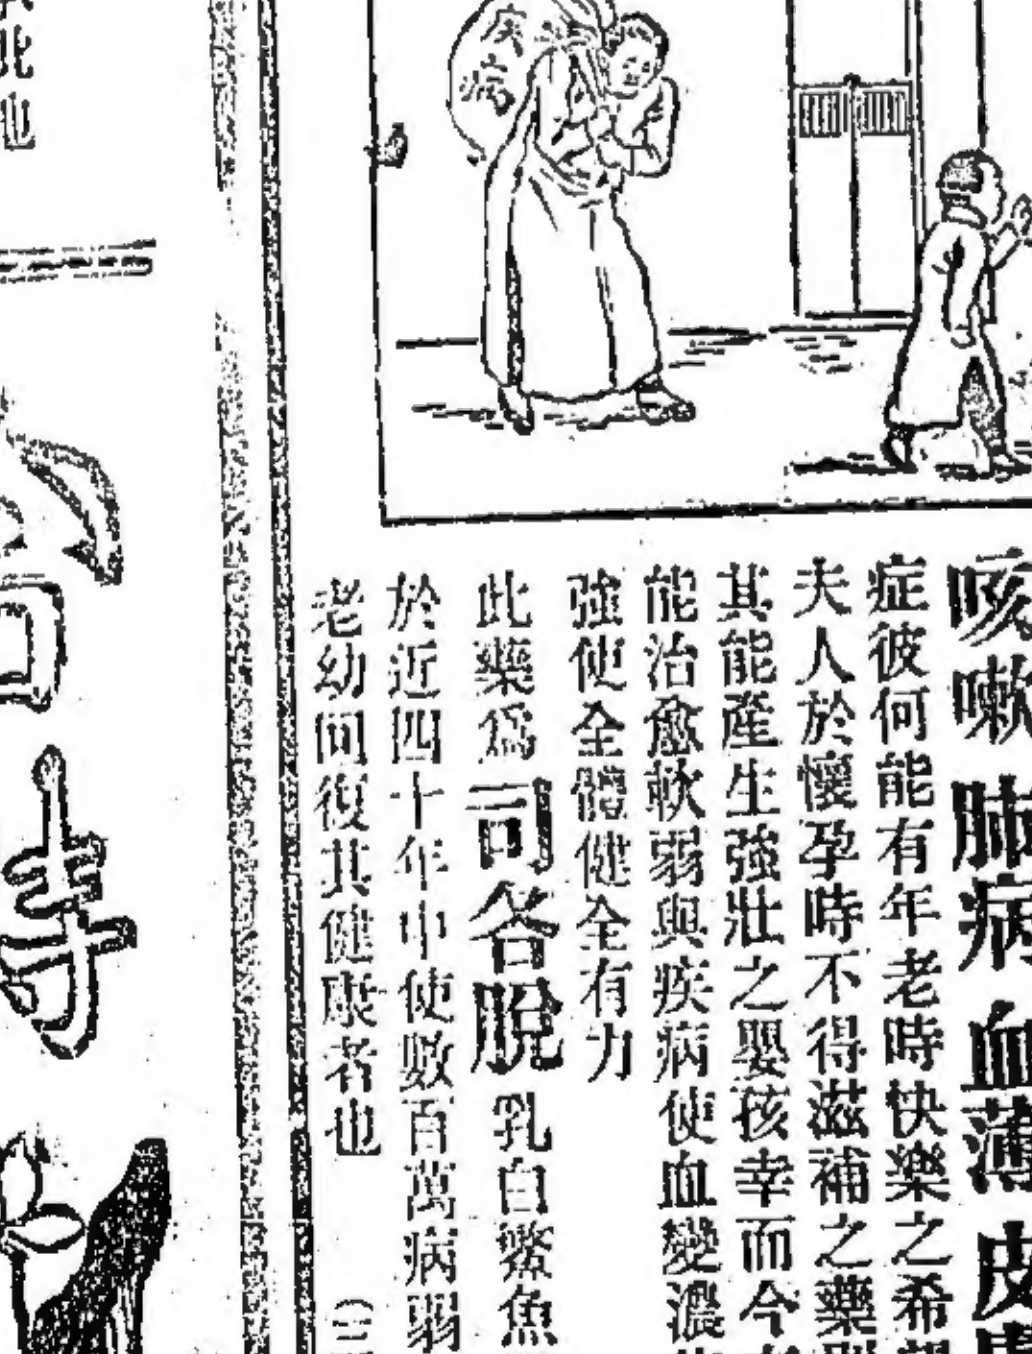 疾病
咳嗽 肺病 血薄 皮膚
症彼何能有年老時快樂之希望
夫人於懷孕時不得滋補之藥則
其能產生強壯之嬰孩幸而今有
能治愈軟弱與疾病使血變濃
強使全體健全有力
此藥爲司各脫乳白鰵魚
於近四十年中使數百萬病弱
老幼回復其健康者也
此也